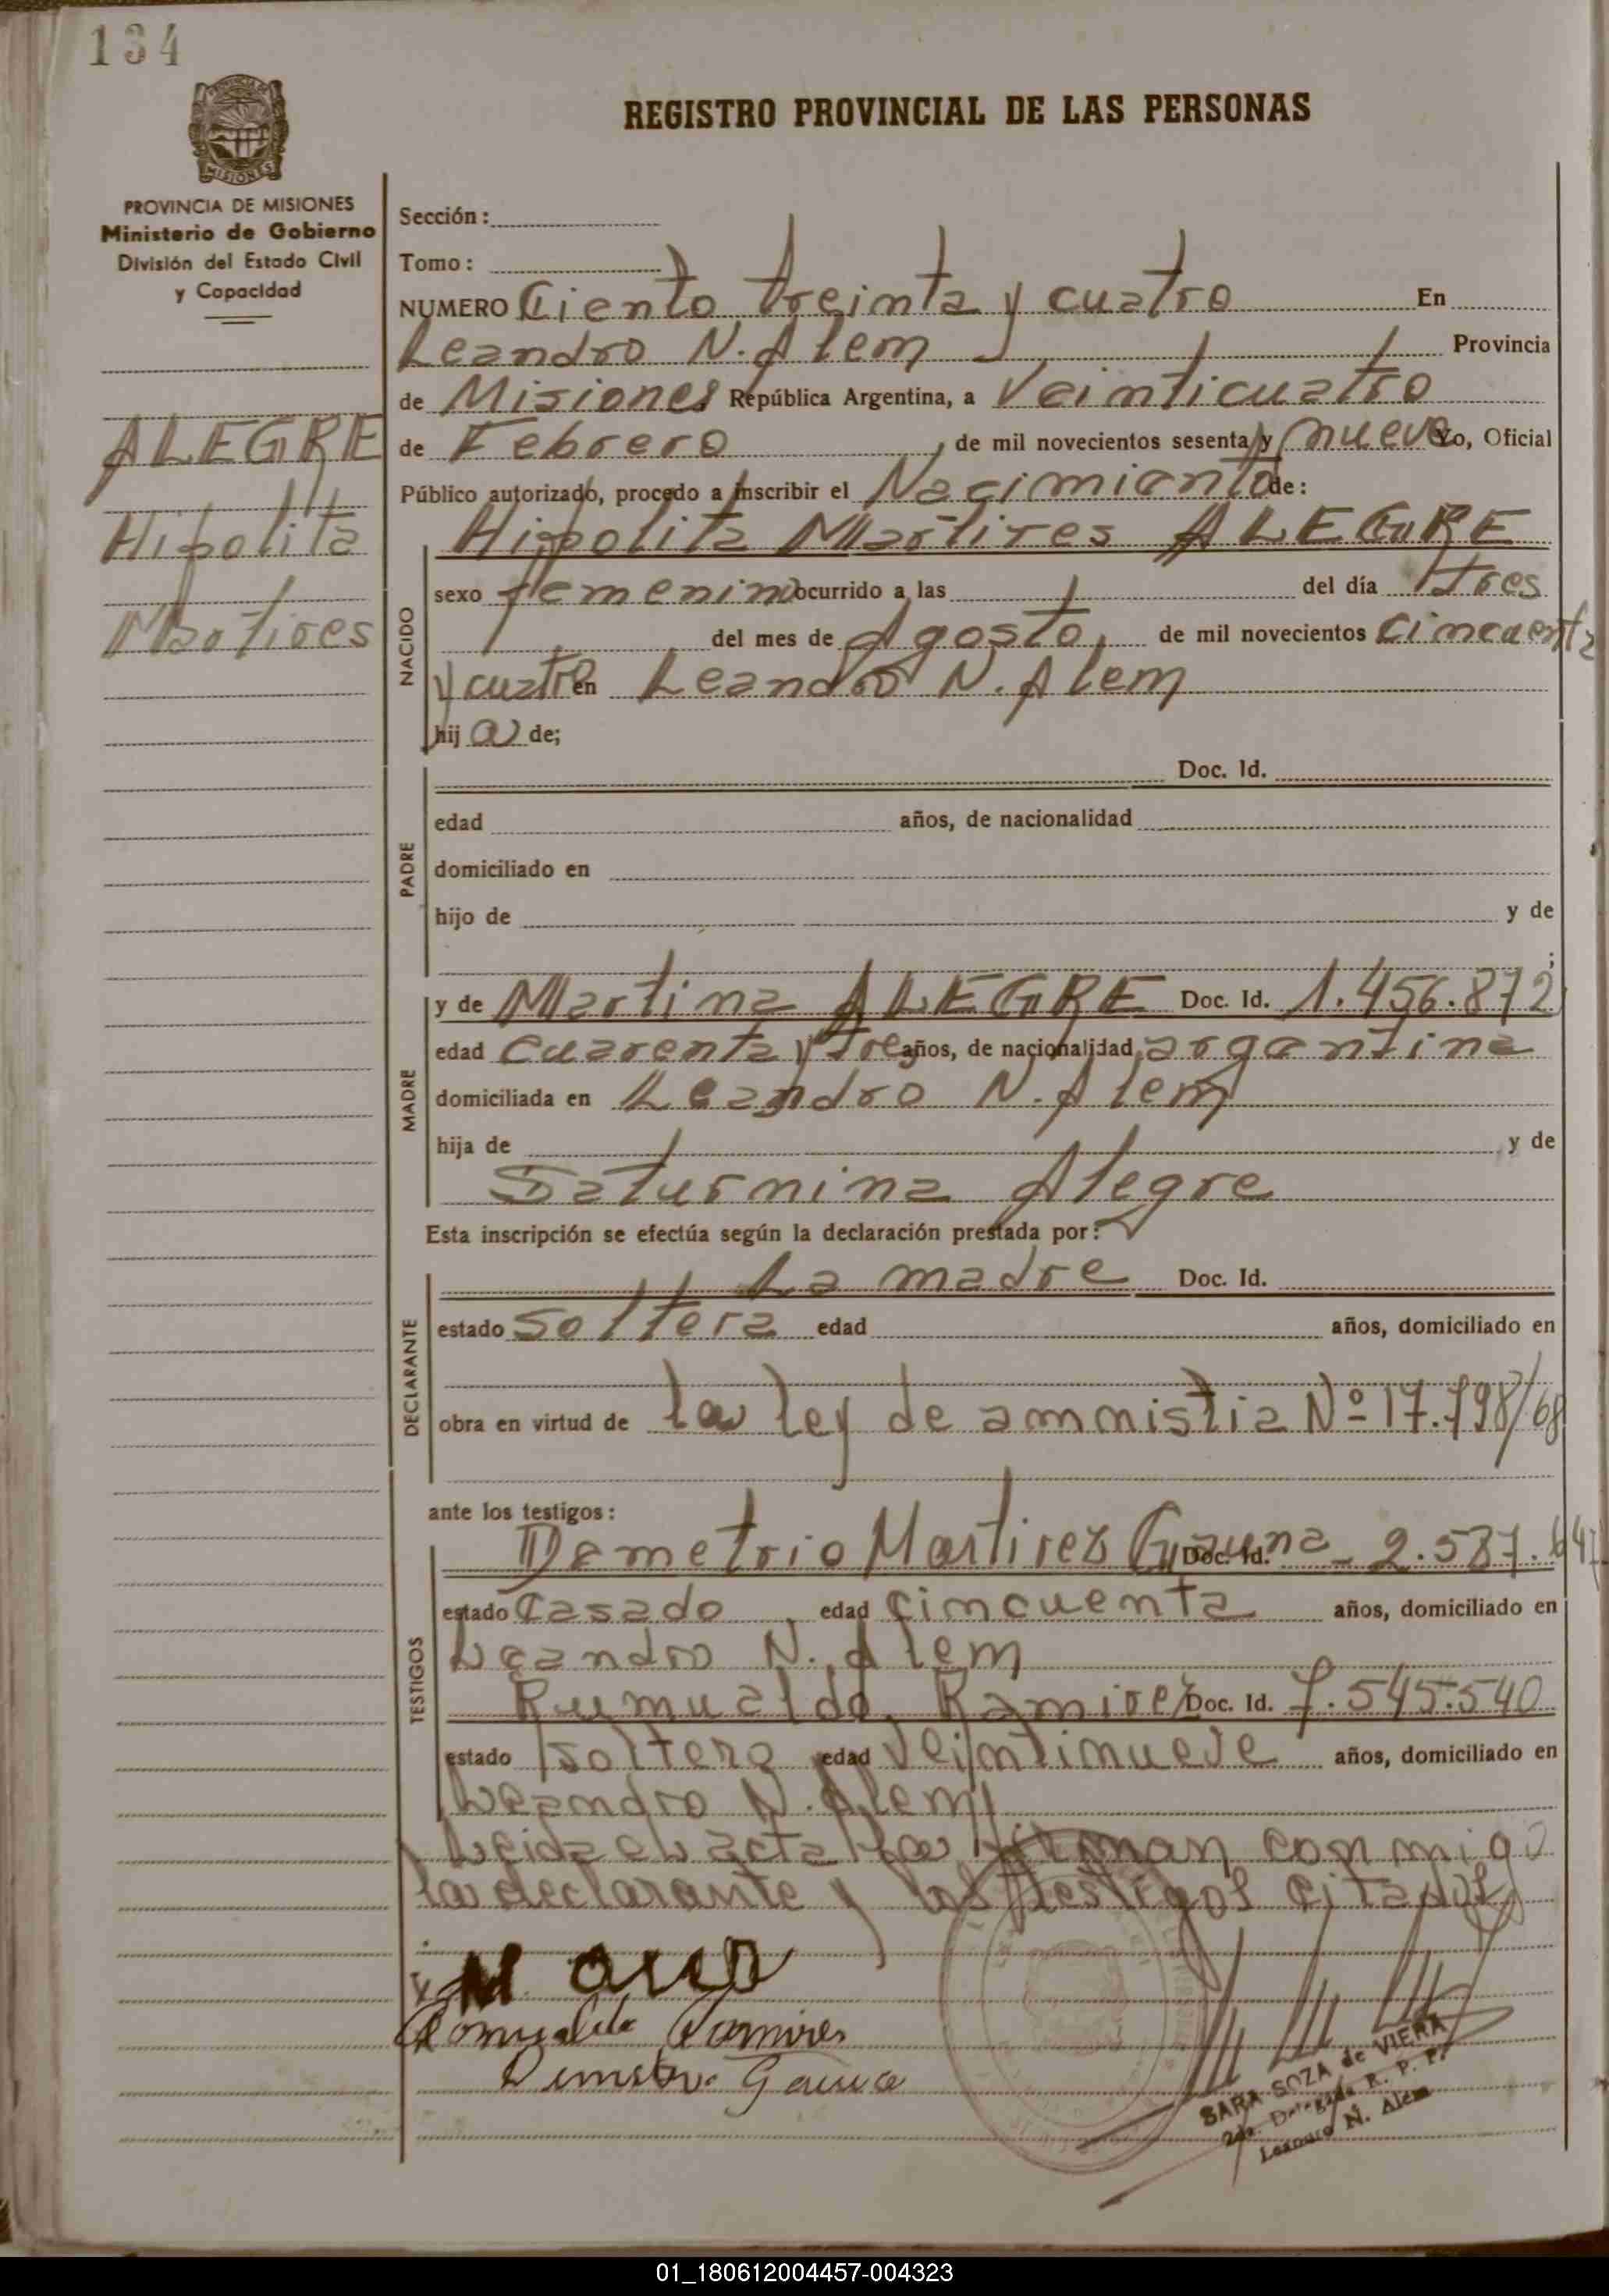 134
REGISTRO PROVINCIAL DE LAS PERSONAS
PROVINCIA DE MISIONES
MISIONES
PROVINCIA DE MISIONES
Ministerio de Gobierno
División del Estado Civil
y Capacidad
ALEGRE
Hipolita
Martires
Sección:
Tomo:
NUMERO Ciento treinta y cuatro En
Leandro N. Alem Provincia
de Misiones República Argentina, a Veinticuatro
de Febrero, de mil novecientos sesenta y nueve Yo, Oficial
Público autorizado, procedo a inscribir el Nacimiento de:
Hipolita Martires ALEGRE
NACIDO
sexo femenino ocurrido a las del día tres
del mes de Agosto, de mil novecientos cincuenta
y cuatro en Leandro N. Alem
hij a de;
PADRE
Doc. Id.
edad años, de nacionalidad
domiciliado en
hijo de y de
;
MADRE
y de Martina ALEGRE Doc. Id. 1.456.872
edad cuarenta y tres años, de nacionalidad argentina
domiciliada en Leandro N. Alem
hija de y de
Saturnina Alegre
Esta inscripción se efectúa según la declaración prestada por:
DECLARANTE
La madre Doc. Id.
estado soltera edad años, domiciliado en
obra en virtud de la ley de amnistia Nº 17.798/68
ante los testigos:
TESTIGOS
Demetrio Martires Gauna Doc. Id. 2.587.647
estado casado, edad cincuenta años, domiciliado en
Leandro N. Alem
Rumualdo Ramirez Doc. Id. 7.545.540
estado soltero, edad veintinueve años, domiciliado en
Leandro N. Alem
Leida el acta la firman con migo
la declarante y los testigos citados
Romualdo Ramires
Demetrio Gauna
SARA SOZA de VIERA
2da. Delegada R. P. P.
Leandro N. Alem
01_180612004457-004323